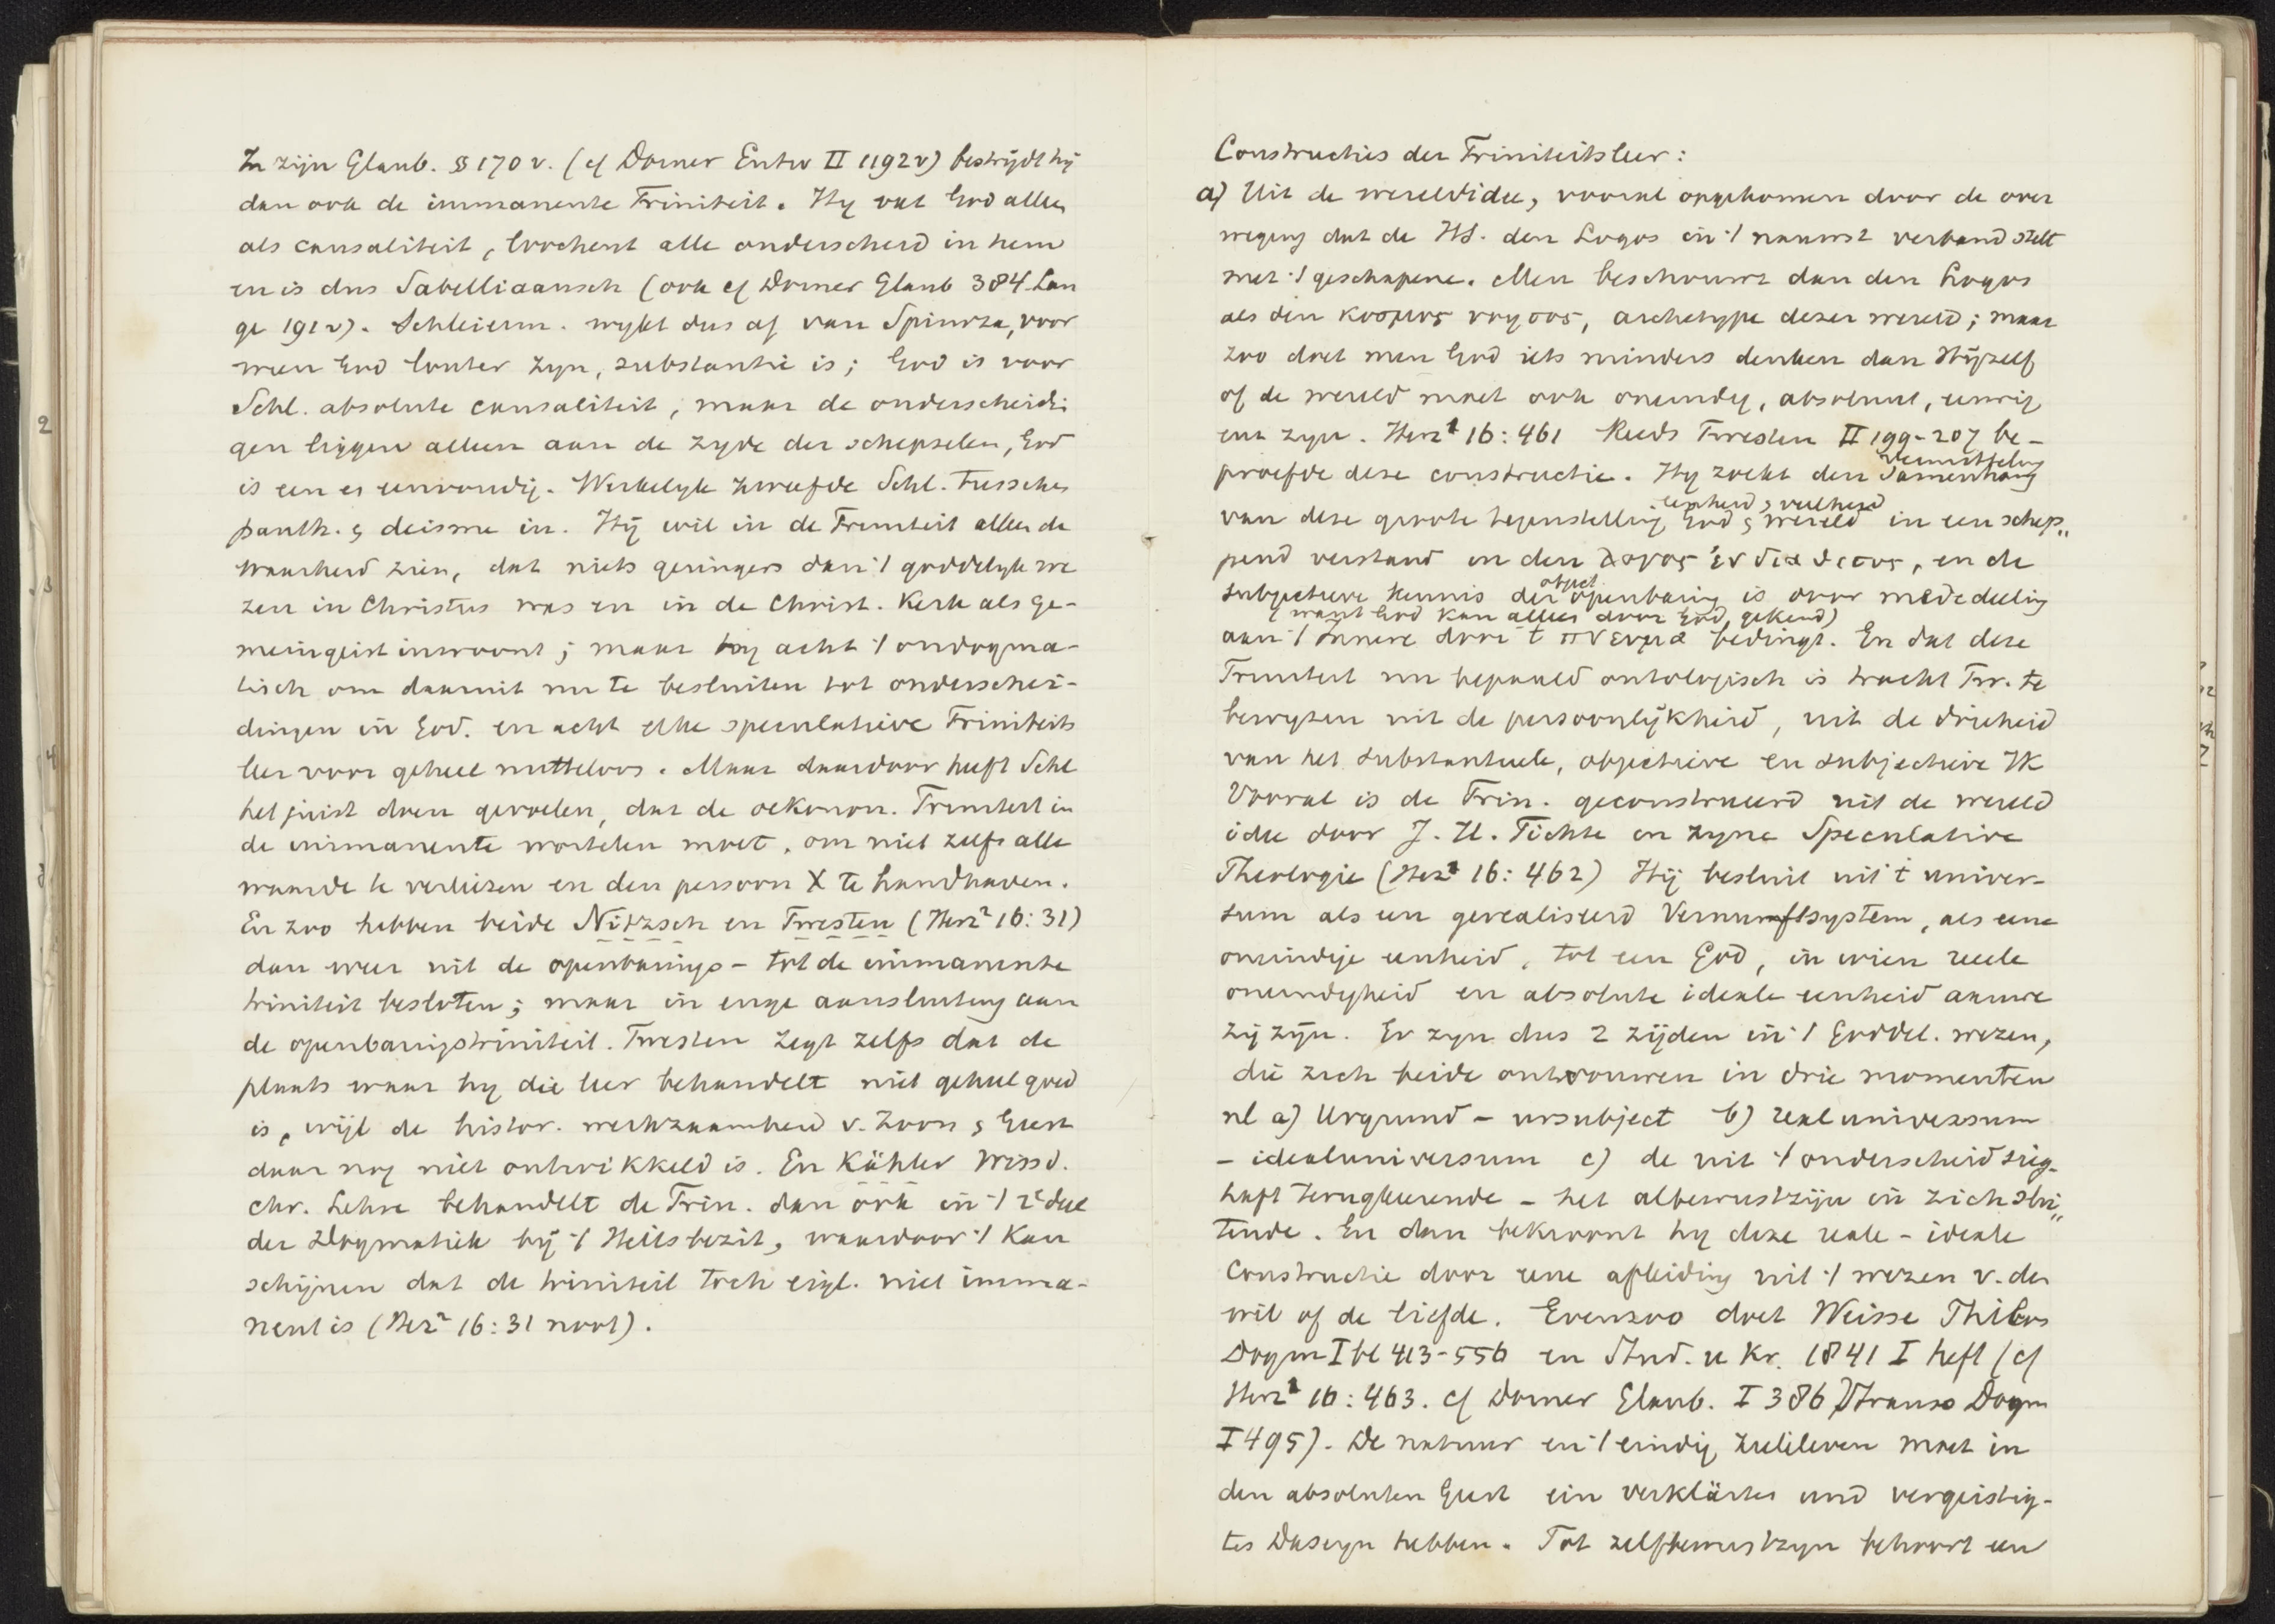 In zijn Glaub. §§ 170 v. (cf Dorner Entw II 1192v) bestrijdt hij
dan ook de immanente Triniteit. Hy vat God alleen
als causaliteit, loochent alle onderscheid in hem
en is dus Sabelliaansch (ook cf Dorner Glaub 384. Lan
ge 191v). Schleierm. wykt dus af van Spinoza, voor
wien God louter zyn, substantie is; God is voor
Schl. absolute causaliteit, maar de onderscheidi
gen liggen alleen aan de zyde der schepselen, God
is een en eenvoudig. Werkelyk zweefde Schl. tusschen
panth. & deisme in. Hij wil in de Triniteit alleen de
waarheid zien, dat niets geringers dan 't goddelyk we
zen in Christus was en in de Christ. Kerk als ge-
meingeist inwoont; maar hy acht 't ondogma-
tisch om daaruit nu te besluiten tot onderschei-
dingen in God. en acht elke speculatieve Triniteits
leer voor geheel nutteloos. Maar daardoor heeft Schl
het juist doen gevoelen, dat de oekonom. Triniteit in
de immanente wortelen moet, om niet zelfs alle
waarde te verliezen en den persoon X te handhaven.
En zoo hebben beide Nitzsch en Twesten (Herz² 16:31)
dan weer uit de openbarings- tot de immanente
triniteit besloten; maar in enge aansluiting aan
de openbaringstriniteit. Twesten zegt zelfs dat de
plaats waar hy die leer behandelt niet geheel goed
is, wijl de histor. werkzaamheid v. Zoon & Geest
daar nog niet ontwikkeld is. En Kähler Wissd.
chr. Lehre behandelt de Trin. dan ook in 't 2e deel
der Dogmatiek bij 't Heilsbezit, waardoor 't kan
schijnen dat de triniteit toch eigl. niet imma-
nent is (Herz² 16:31 noot).
Constructies der Triniteitsleer:
a) Uit de wereldidee, vooral opgekomen door de over
weging dat de HS. den Logos in 't nauwst verband stelt
met 't geschapene. Men beschouwt dan den Logos
als den κοσμος νοητος, archetype dezer wereld; maar
zoo doet men God iets minders denken dan Hijzelf
of de wereld moet ook oneindig, absoluut, eeuwig
enz zyn. Herz¹ 16:461 Reeds Twesten II 199-207 be-
proefde deze constructie. Hy zoekt den Samenhang
Vermittelung
van deze groote tegenstelling God & wereld in een schep„
eenheid & veelheid
pend verstand in den λογος ἐνδιαθετος, en de
subjectieve kennis der openbaring is door mededeeling
object.
aan 't Innere door 't πνευμα bedingt. En dat deze
(want God kan alleen door God, gekend)
Triniteit nu bepaald ontologisch is tracht Tw. te
bewyzen uit de persoonlijkheid, uit de drieheid
van het substantieele, objectieve en subjectieve Ik
Vooral is de Trin. geconstrueerd uit de wereld
idee door J. H. Fichte in zyne Speculative
Theologie (Herz¹ 16:462) Hij besluit uit 't univer-
sum als een gerealiseerd Vernunftsystem, als eene
oneindige eenheid, tot een God, in wien reeele
oneindigheid en absolute ideale eenheid aanwe
zij zijn. Er zyn dus 2 zijden in 't Goddel. wezen,
die zich beide ontvouwen in drie momenten
nl a) Urgrund – ursubject b) realuniversum
– idealuniversum c) de uit 't onderscheid sieg-
haft terugkeerende – het albewustzijn in zich slui„
tende. En dan bekroont hy deze reale – ideale
constructie door eene afleiding uit 't wezen v. den
wil of de liefde. Evenzoo doet Weisse Philos
Dogm I bl 413-556 en Stud. u Kr. 1841 I heft (cf
Herz¹ 16:463. cf Dorner Glaub. I 386 Strauss Dogm
I 495). De natuur en 't eindig zieleleven moet in
den absoluten Geest ein verklärtes und vergeistig-
tes Daseyn hebben. Tot zelfbewustzyn behoort een